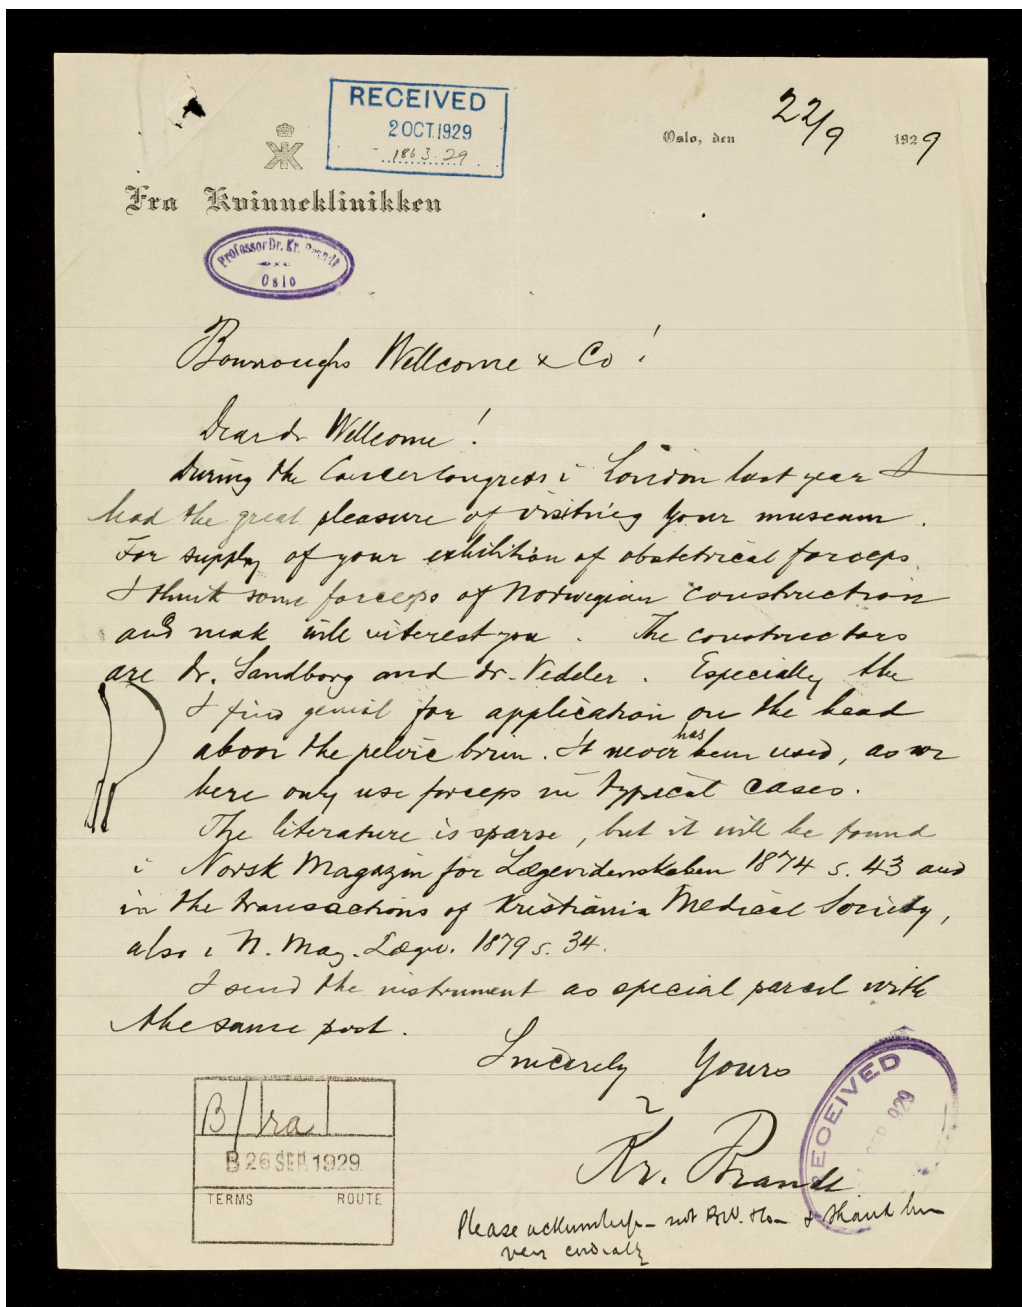 RECEIVED
2 OCT 1929
1863.29
Oslo, den 22/9 1929
Fra Kvinneklinikken
Professor Dr. Kr. Brandt
Oslo
Bourroughs Wellcome & Co !
Dear dr Wellcome !
During the Cancercongress i London last year I
had the great pleasure of visiting your museum.
For supply of your exhibition of obstetrical forceps
I think some forceps of Norwegian construction
and mak will interest you. The constructors
are dr. Sandborg and dr. Vedeler. Especially the
I find genial for application on the head
aboov the pelvic brim. It never has been used, as we
here only use forceps in typical cases.
The literature is sparse, but it will be found
i Norsk Magazin for Lægevidenskaben 1874 s. 43 and
in the transactions of Kristiania Medical Society,
also i N. Mag. Lægev. 1879 s. 34.
I send the instrument as special parcel with
the same post.
Sincerely Yours
Kr. Brandt
RECEIVED
SEP 1929
B/ra
B 26 SEP 1929
TERMS ROUTE
Please acknowledge - not B.W. & Co - & thank him
very cordially